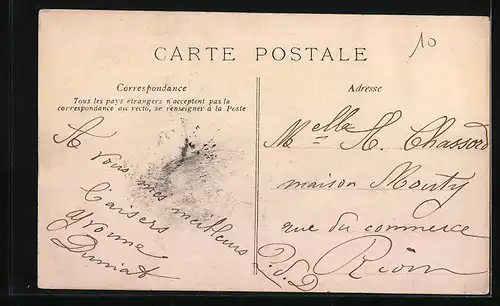 10
CARTE POSTALE
Correspondance
Tous les pays étrangers n'acceptent pas la
correspondance au recto, se renseigner à la Poste
A Vous mes meilleurs
baisers
Yvonne
Adresse
Melle A. Chassard
maison Mouty
rue du commerce
Riom
P.d.D